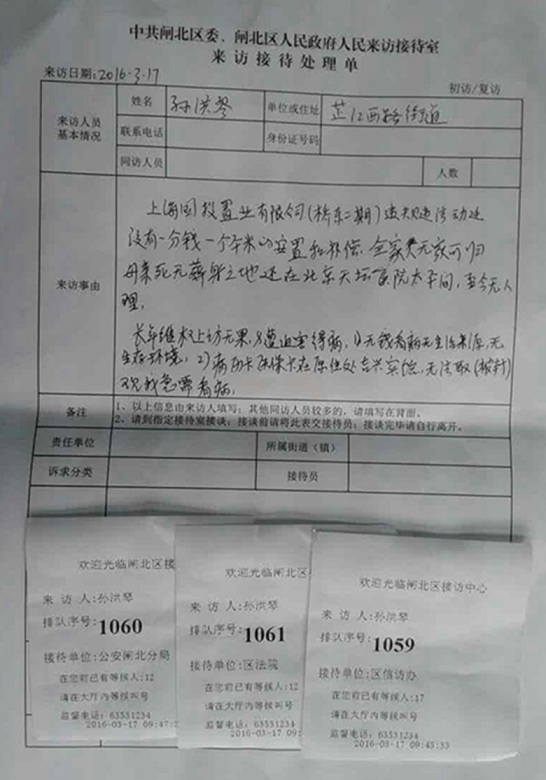 中共闸北区委、闸北区人民政府人民来访接待室
来访接待处理单
来访日期:2016.3.17
初访/复访
来访人员基本情况
姓名 孙洪琴 单位或住址 芷江西路街道
联系电话 身份证号码
同访人员 人数
来访事由
上海国投置业有限公司(桥东二期)违规违法动迁
没有一分钱一个平米的安置和补偿,全家贵无家可归
母亲死无葬身之地还在北京天坛医院太平间,至今无人
理.
长年维权上访无果,遭迫害得病,1)无钱看病无生活来源,无
生存环境;2)病历卡医保卡在原住处,无法取
现我急需看病.
备注
1、以上信息由来访人填写;其他同访人员较多的,请填写在背面。
2、请到指定接待室接谈;接谈前请将此表交接待员;接谈完毕请自行离开。
责任单位 所属街道(镇)
诉求分类 接待员
欢迎光临闸北区接
来 访 人:孙洪琴
排队序号:1060
接待单位:公安闸北分局
在您前已有等候人:12
请在大厅内等候叫号
监督电话:63551234
2016-03-17 09:47:
欢迎光临闸北区
来 访 人:孙洪琴
排队序号:1061
接待单位:区法院
在您前已有等候人:12
请在大厅内等候叫号
监督电话:63551234
2016-03-17 09:
欢迎光临闸北区接访中心
来 访 人:孙洪琴
排队序号:1059
接待单位:区信访办
在您前已有等候人:17
请在大厅内等候叫号
监督电话:63551234
2016-03-17 09:45:33